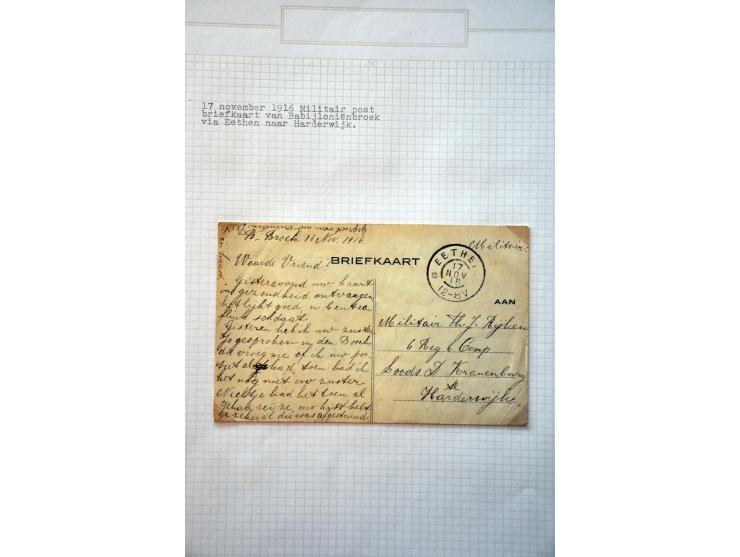 17 november 1916 Militair post
briefkaart van Babijloniënbroek
via Eethen naar Harderwijk.
B. Broek 16 Nov. 1916.
Waarde Vriend!
Gisteravond uw kaart
en gezondheid ontvangen
het lijkt goed, u bent een
flink soldaat.
Gisteren heb ik uw zuster
Jo gesproken in den Bosch
dat vroeg me of ik uw por-
tret al had, toen had ik
het nog niet uw zuster
Neeltje had het toen al
gehad zei ze,
BRIEFKAART
Militair.
EETHEN
17
NOV
16
12-8V
AAN
Militair Th. J. Rijken
6 Reg 6 Comp
Loods D Kranenburg
te
Harderwijk